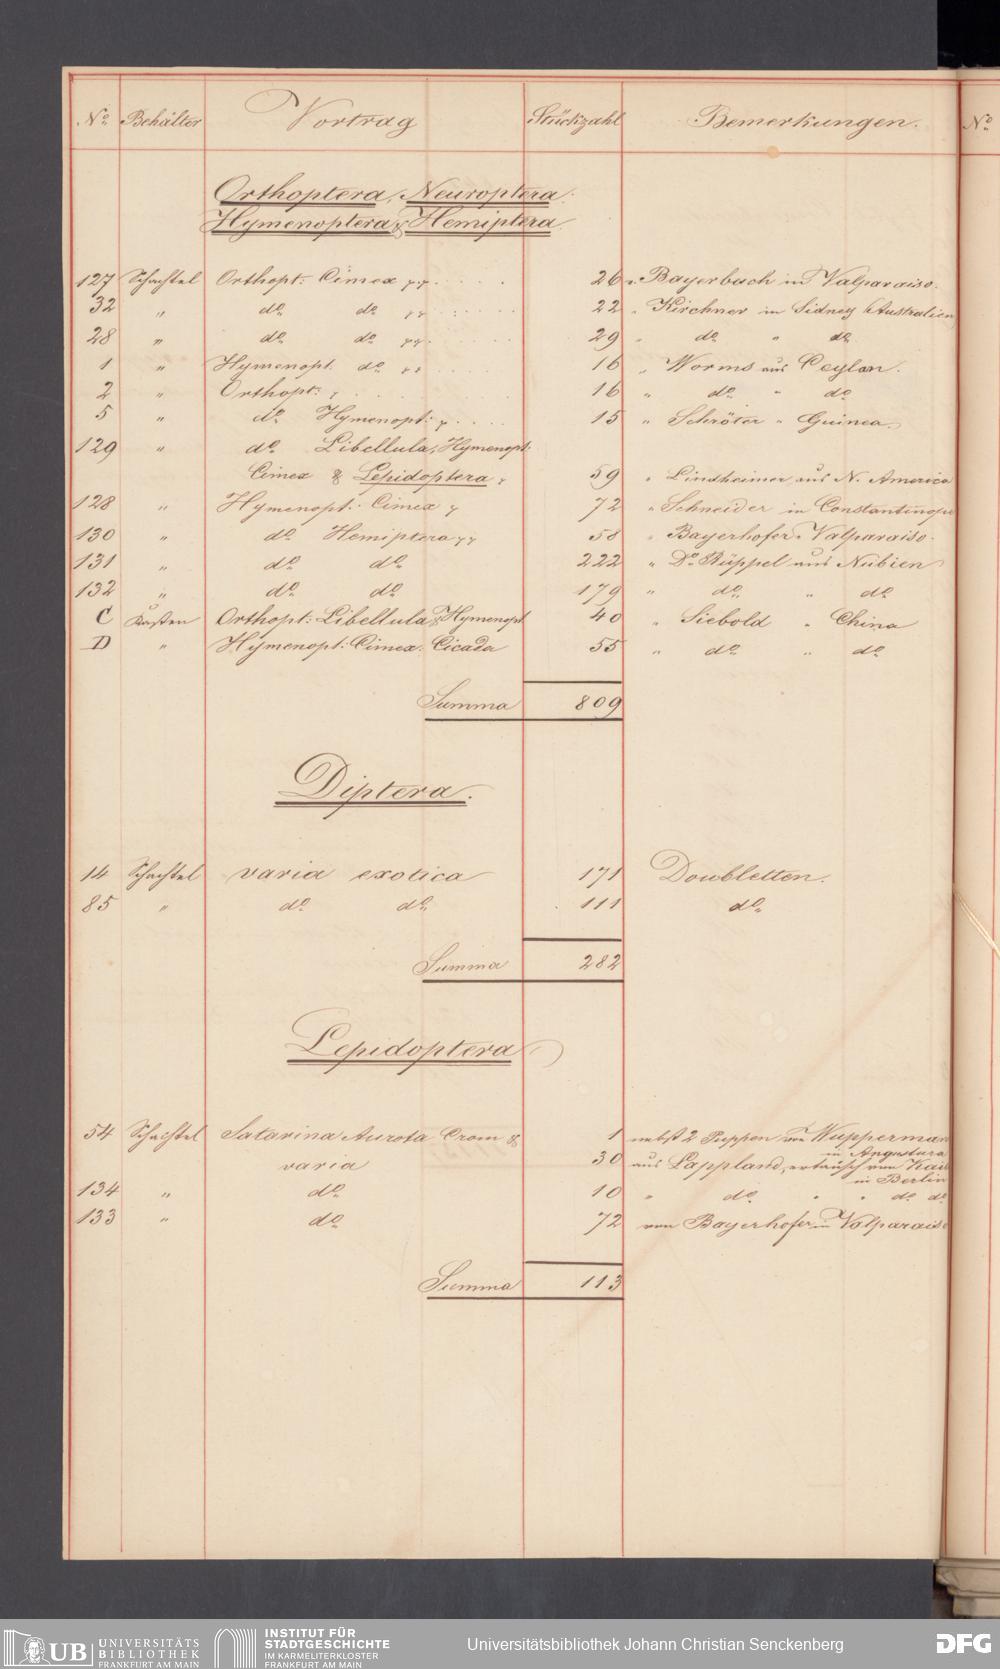 No. Behälter Vortrag Stückzahl Bemerkungen. No.
Orthoptera, Neuroptera.
Hymenoptera & Hemiptera.
127 Schachtel Orthopt: Cimex 26 v. Bayerbach in Valparaiso.
32 " do. do. 22 " Kirchner in Sidney (Australien
28 " do. do. 29 " do. " do.
1 " Hymenopt. do. 16 " Worms aus Ceylon.
2 " Orthopt: 16 " do. " do.
5 " do. Hymenopt: 15 " Schröter " Guinea.
129 " do. Libellula, Hymenopt:
Cimex & Lepidoptera 59 " Lindheimer aus N. America
128 " Hymenopt: Cimex 72 " Schneider in Constantinopel
130 " do. Hemiptera 58 " Bayerhofer " Valparaiso.
131 " do. do. 222 " Dr. Rüppel aus Nubien
132 " do. do. 179 " do. " do.
C Kasten Orthopt: Libellula & Hymenopt 40 " Siebold " China
D " Hymenopt: Cimex. Cicada 55 " do. " do.
Summa 809
Diptera.
14 Schachtel varia exotica 171 Doubletten.
85 " do. do. 111 do.
Summa 282
Lepidoptera
54 Schachtel Satarina Aurota Cram & 1 nebst 2 Puppen von Wupperman
in Angustura
varia 30 aus Lappland, ertausch von
in Berlin
134 " do. 10 " do. " " do. do.
133 " do. 72 von Bayerhofer in Valparaiso
Summa 113
UB UNIVERSITÄTS
BIBLIOTHEK
FRANKFURT AM MAIN
INSTITUT FÜR
STADTGESCHICHTE
IM KARMELITERKLOSTER
FRANKFURT AM MAIN
Universitätsbibliothek Johann Christian Senckenberg
DFG